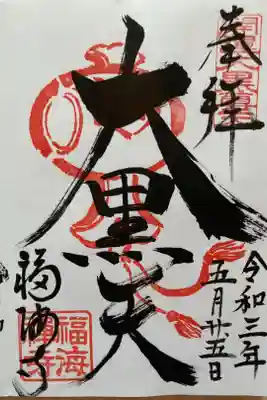 奉拝
大黒天
令和三年
五月廿五日
福海寺
福海
禅寺